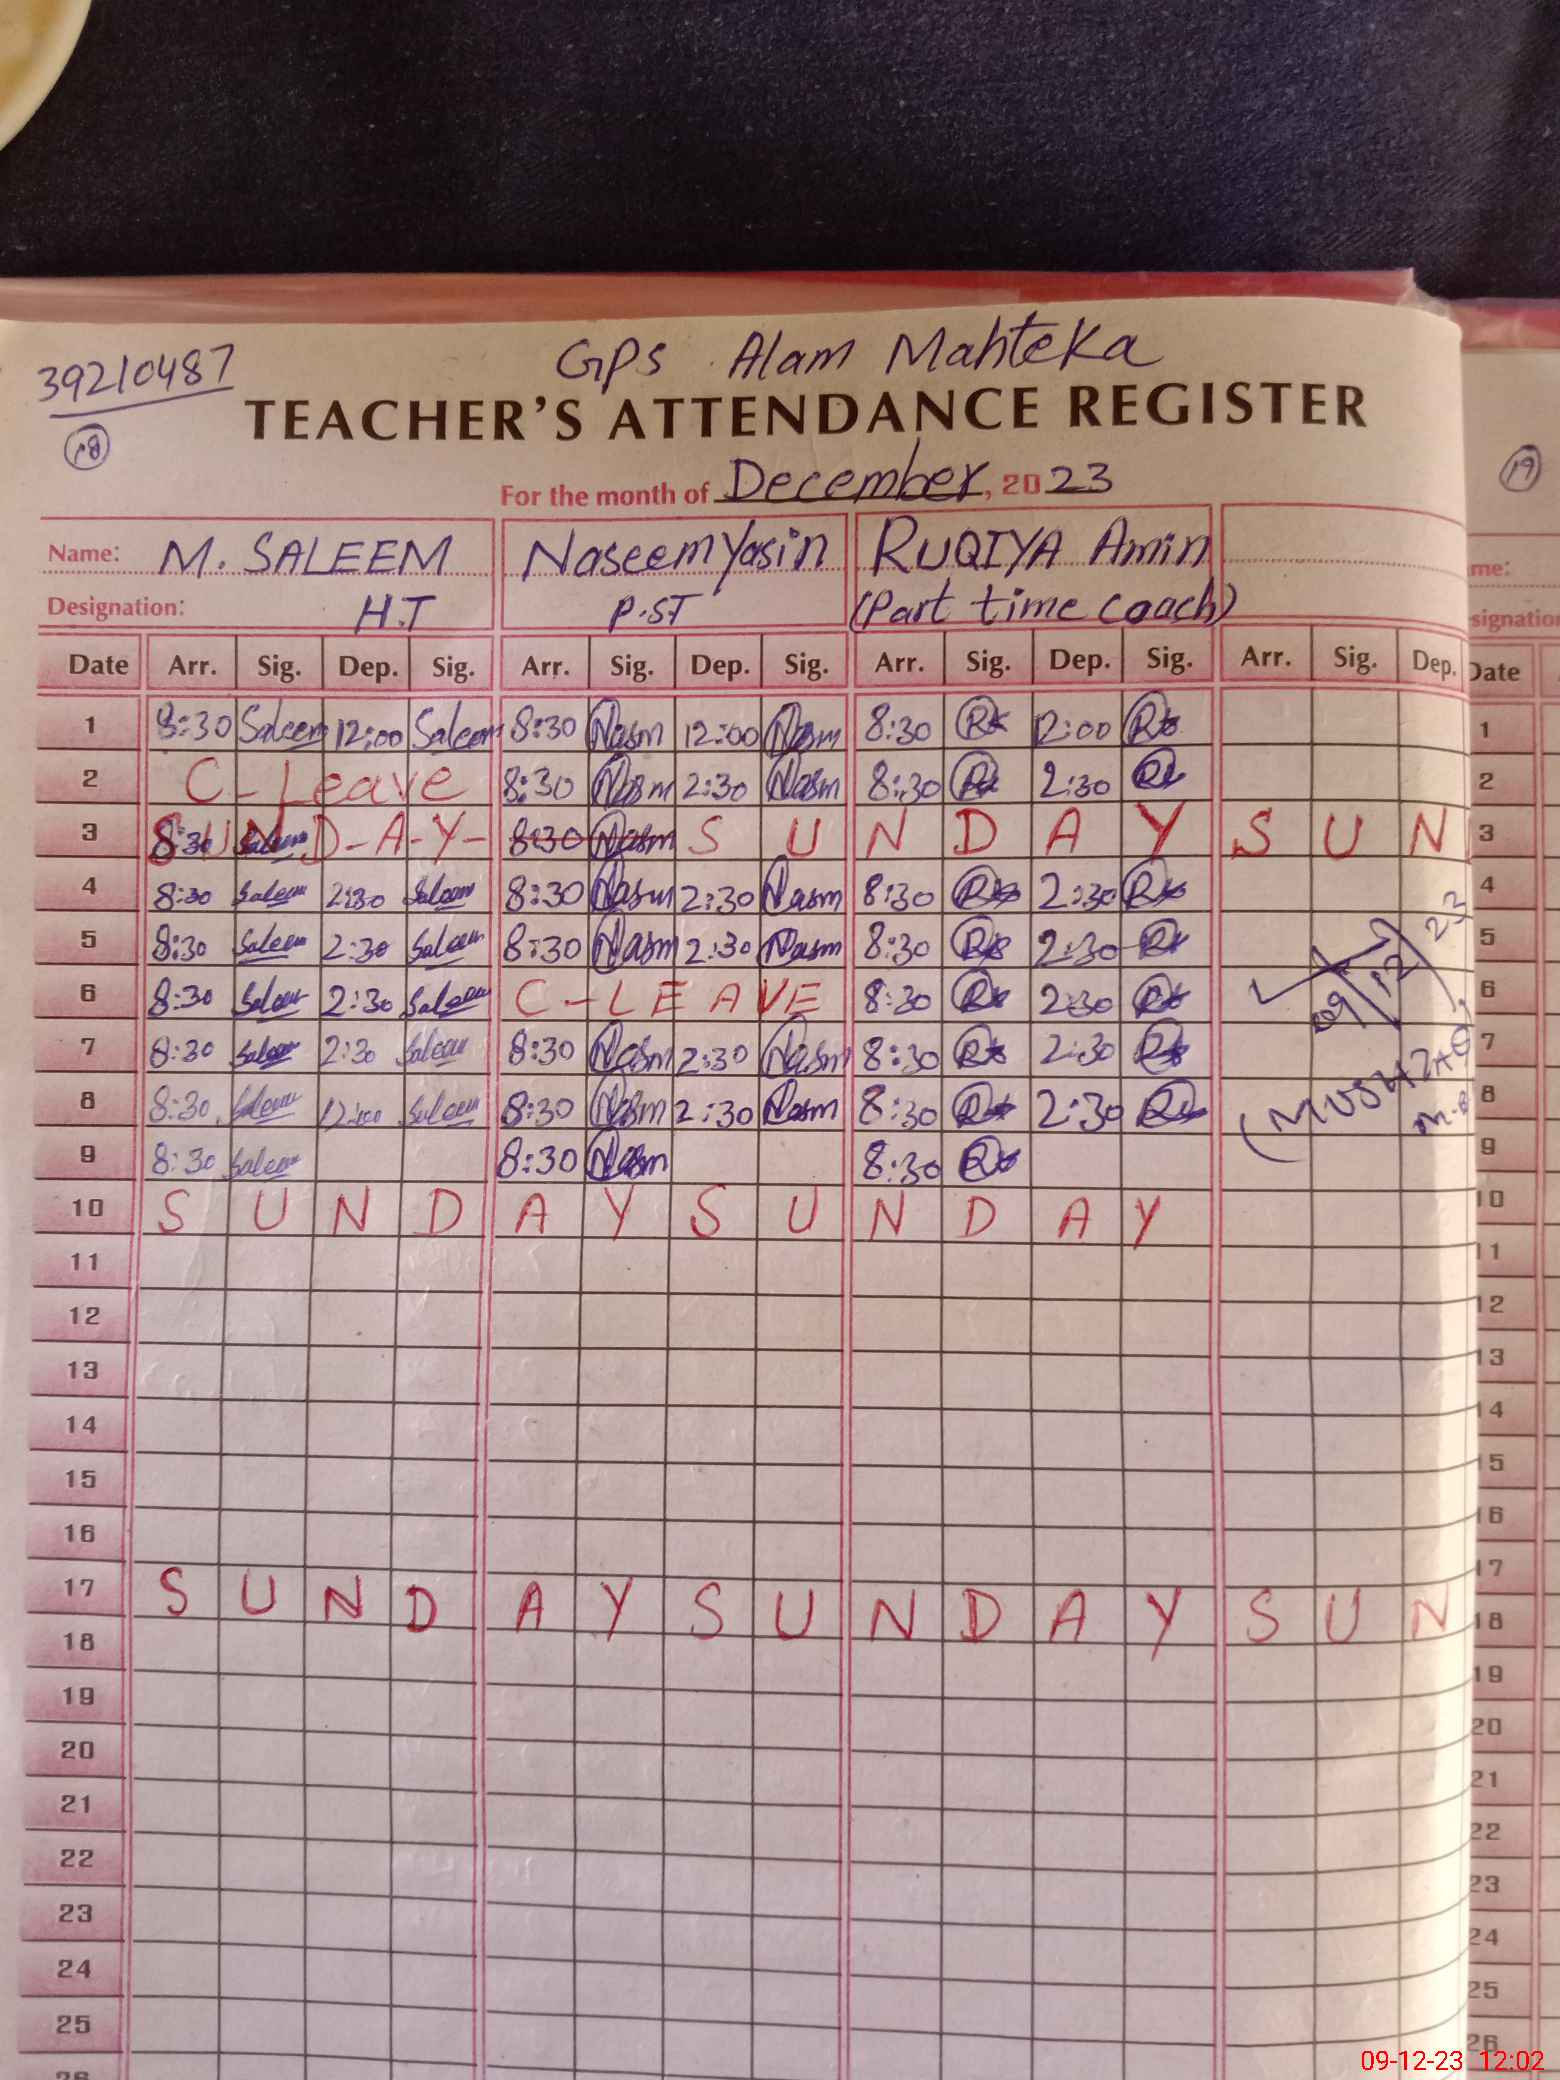 39210487
GPS Alam Mahteka
TEACHER'S ATTENDANCE REGISTER
18
19
For the month of December, 2023
Name: M. SALEEM Naseem Yasin RUQIYA Amin
Designation: H.T P.ST (Part time coach)
Date Arr. Sig. Dep. Sig. Arr. Sig. Dep. Sig. Arr. Sig. Dep. Sig. Arr. Sig. Dep. Date
1 8:30 Saleem 12:00 Saleem 8:30 Nasm 12:00 Nasm 8:30 12:00 1
2 C-Leave 8:30 Nasm 2:30 Nasm 8:30 2:30 2
3 8:30 Saleem S U N D-A-Y- 8:30 Nasm S U N D A Y S U N 3
4 8:30 Saleem 2:30 Saleem 8:30 Nasm 2:30 Nasm 8:30 2:30 4
5 8:30 Saleem 2:30 Saleem 8:30 Nasm 2:30 Nasm 8:30 2:30 5
6 8:30 Saleem 2:30 Saleem C-LEAVE 8:30 2:30 09/12/23 6
7 8:30 Saleem 2:30 Saleem 8:30 Nasm 2:30 Nasm 8:30 2:30 7
8 8:30 Saleem 12:00 Saleem 8:30 Nasm 2:30 Nasm 8:30 2:30 8
9 8:30 Saleem 8:30 Nasm 8:30 9
10 S U N D A Y S U N D A Y 10
11 11
12 12
13 13
14 14
15 15
16 16
17 S U N D A Y S U N D A Y S U N 17
18 18
19 19
20 20
21 21
22 22
23 23
24 24
25 25
26 26
09-12-23 12:02